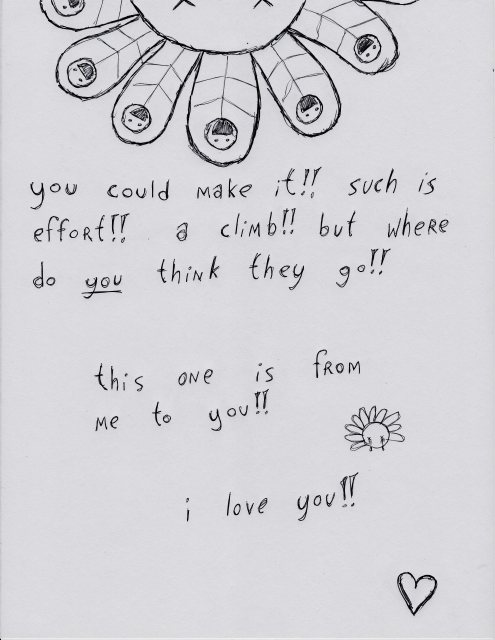 you could make it!! such is
effort!! a climb!! but where
do you think they go!!
this one is from
me to you!!
i love you!!